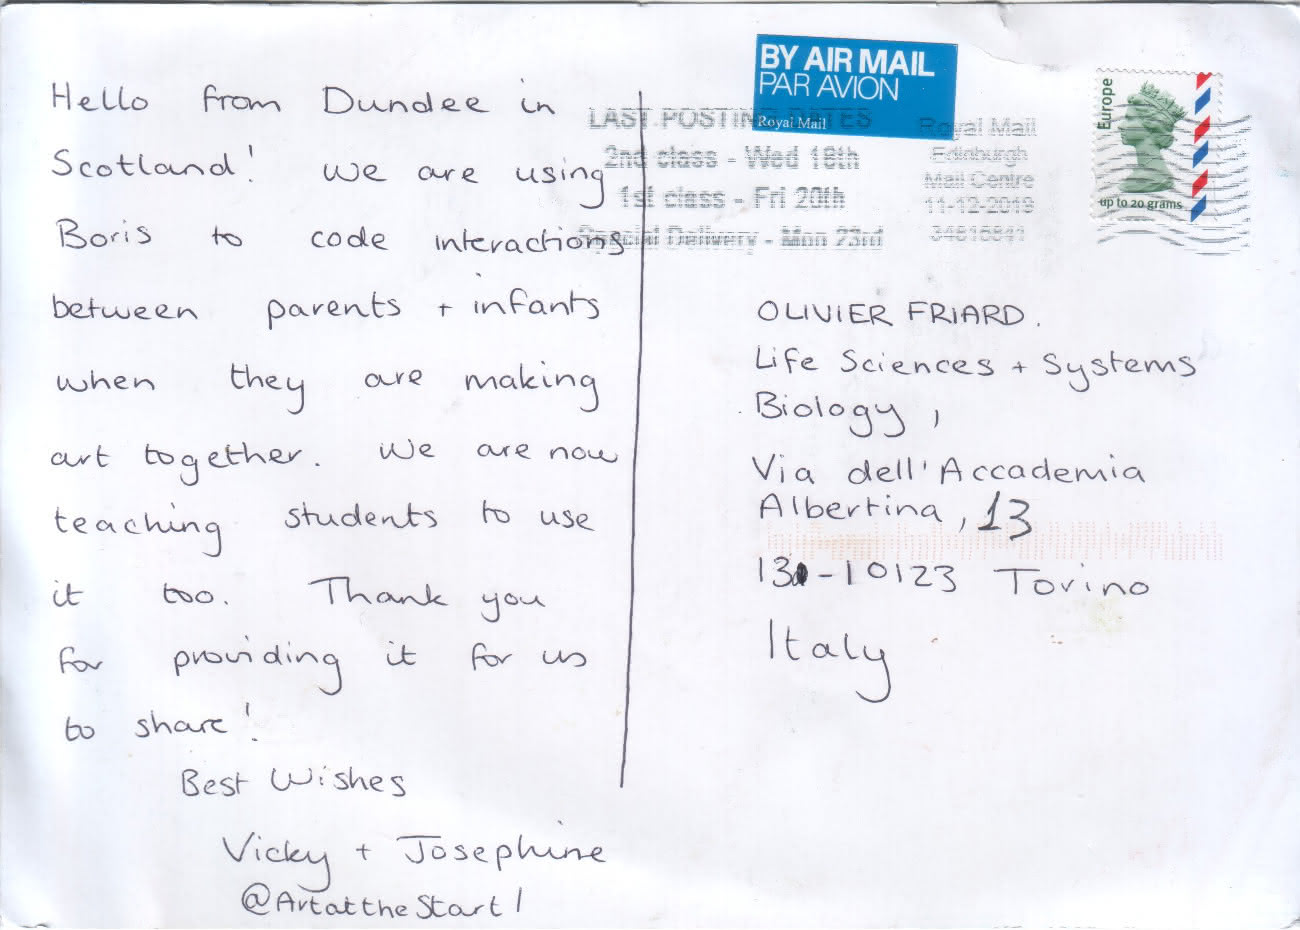 Hello from Dundee in
Scotland! We are using
Boris to code interactions
between parents + infants
when they are making
art together. We are now
teaching students to use
it too. Thank you
for providing it for us
to share!
Best Wishes
Vicky + Josephine
@ArtattheStart1
BY AIR MAIL
PAR AVION
Royal Mail
LAST POSTING DATES
2nd class - Wed 18th
1st class - Fri 20th
Special Delivery - Mon 23rd
Royal Mail
Edinburgh
Mail Centre
11-12-2019
Europe
up to 20 grams
OLIVIER FRIARD.
Life Sciences + Systems
Biology,
Via dell'Accademia
Albertina, 13
13 -10123 Torino
Italy